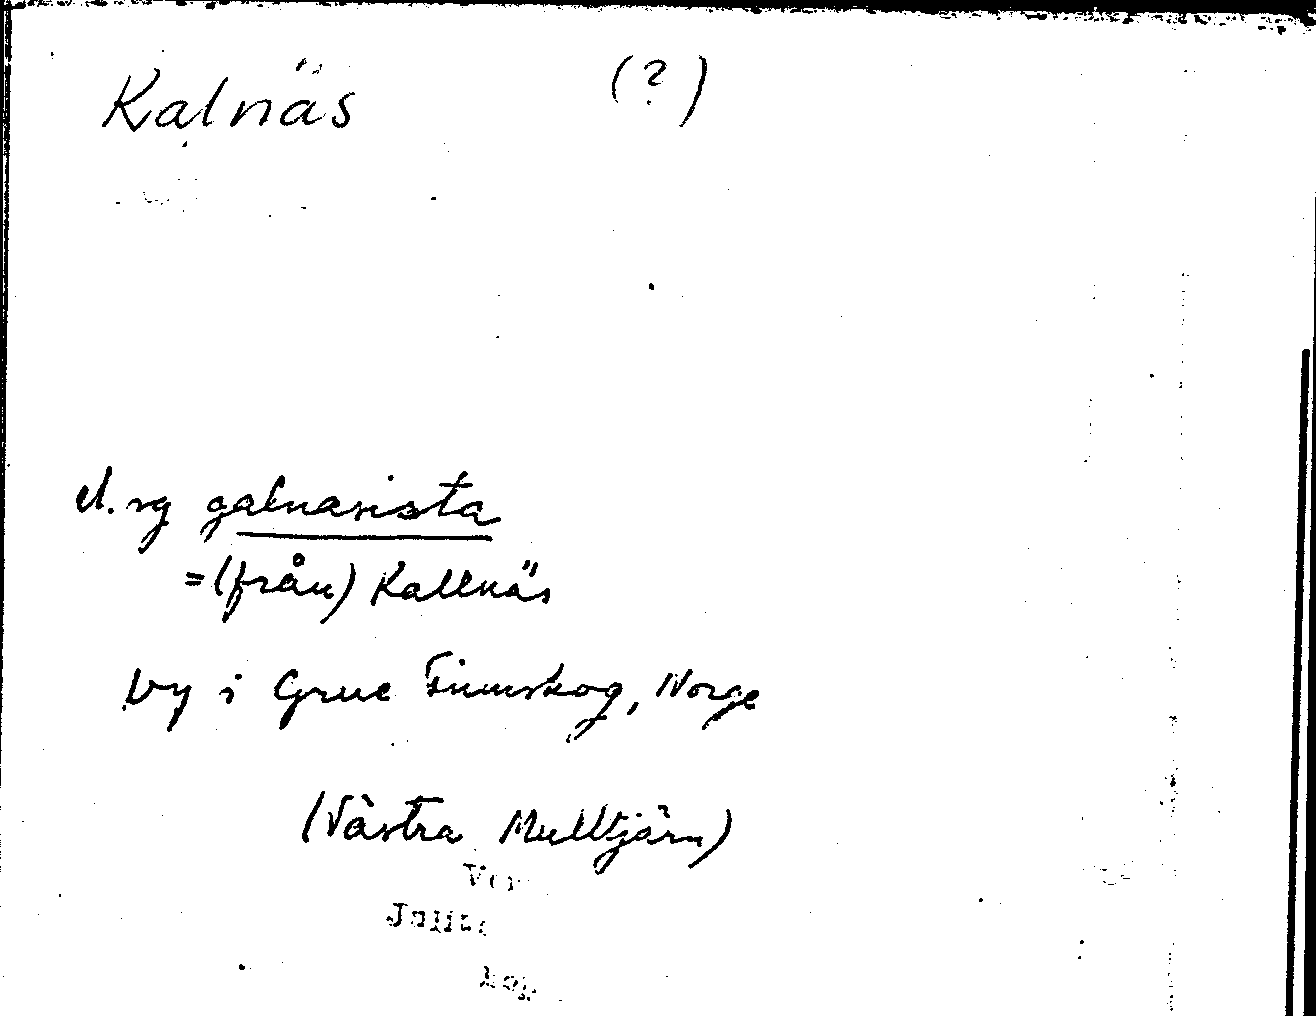 Kalnäs (?)
el. sg galnasista
= (från) Kallnäs
by i Grue Finnskog, Norge
(Västra Mulltjärn)